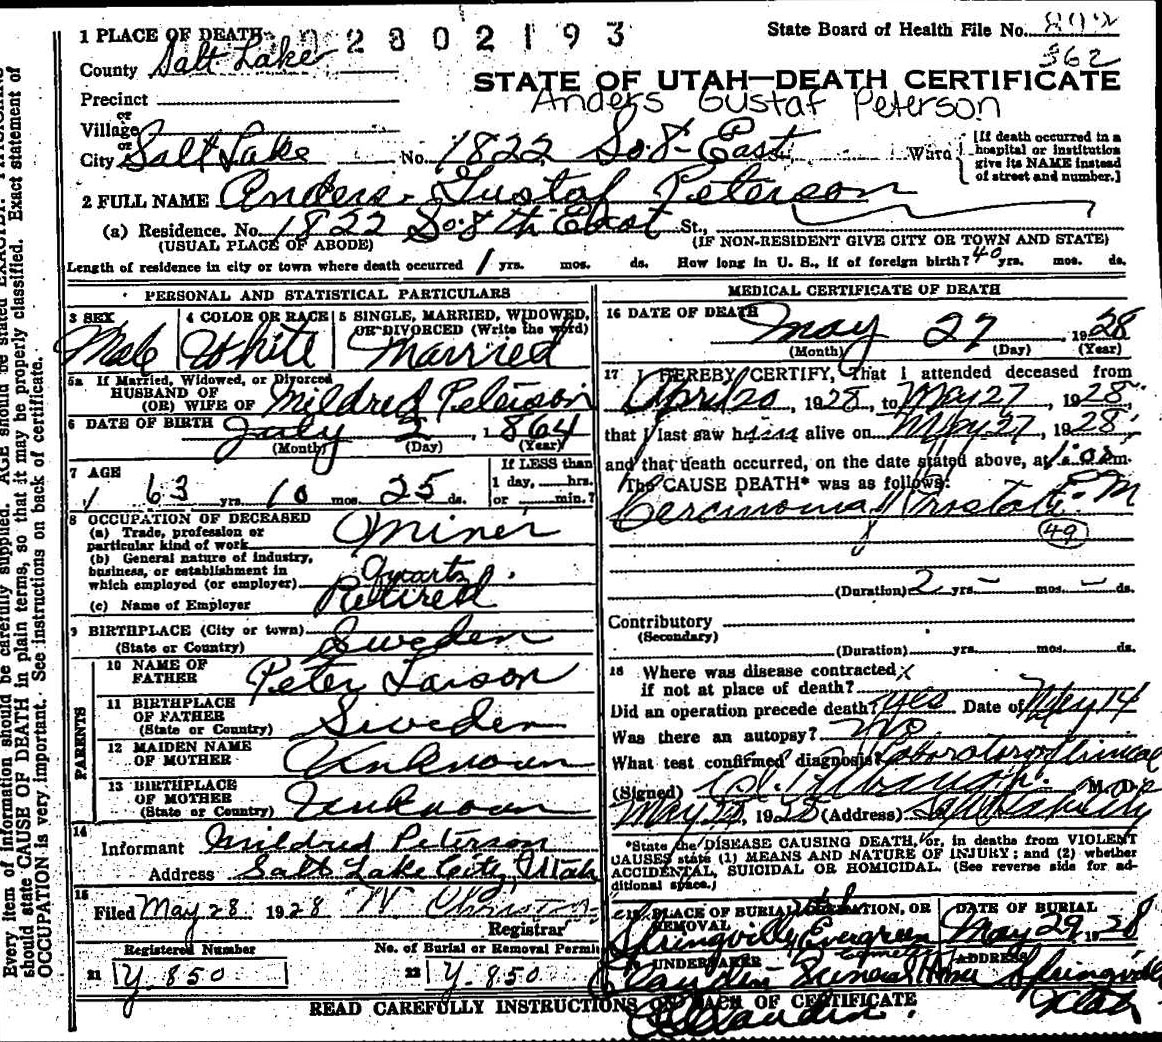 Every item of information should be carefully supplied. AGE should be stated EXACTLY. PHYSICIANS
should state CAUSE OF DEATH in plain terms, so that it may be properly classified. Exact statement of
OCCUPATION is very important. See instructions on back of certificate.
1 PLACE OF DEATH
2802193
State Board of Health File No. 892
County Salt Lake
362
STATE OF UTAH—DEATH CERTIFICATE
Precinct
Anders Gustaf Peterson
or
Village
or
City Salt Lake No. 1822 So. 8- East Ward
[If death occurred in a
hospital or institution
give its NAME instead
of street and number.]
2 FULL NAME Anders Gustaf Peterson
(a) Residence. No. 1822 So 8th East St.,
(USUAL PLACE OF ABODE) (IF NON-RESIDENT GIVE CITY OR TOWN AND STATE)
Length of residence in city or town where death occurred 1 yrs. mos. ds. How long in U. S., if of foreign birth? 40 yrs. mos. ds.
PERSONAL AND STATISTICAL PARTICULARS
3 SEX
Male
4 COLOR OR RACE
White
5 SINGLE, MARRIED, WIDOWED,
OR DIVORCED (Write the word)
Married
5a If Married, Widowed, or Divorced
HUSBAND OF
(OR) WIFE OF Mildred Peterson
6 DATE OF BIRTH July 2, 1864
(Month) (Day) (Year)
7 AGE
63 yrs. 10 mos. 25 ds.
If LESS than
1 day, hrs.
or min.?
8 OCCUPATION OF DECEASED
(a) Trade, profession or
particular kind of work Miner
(b) General nature of industry,
business, or establishment in
which employed (or employer) Quartz
(c) Name of Employer Retired
9 BIRTHPLACE (City or town)
(State or Country) Sweden
PARENTS
10 NAME OF
FATHER Peter Larson
11 BIRTHPLACE
OF FATHER
(State or Country) Sweden
12 MAIDEN NAME
OF MOTHER Unknown
13 BIRTHPLACE
OF MOTHER
(State or Country) Unknown
14
Informant Mildred Peterson
Address Salt Lake City, Utah
15
Filed May 28 1928
Registrar
Registered Number No. of Burial or Removal Permit
21 Y.850 22 Y.850
MEDICAL CERTIFICATE OF DEATH
16 DATE OF DEATH May 27 1928
(Month) (Day) (Year)
17 I HEREBY CERTIFY, That I attended deceased from
April 20, 1928, to May 27, 1928,
that I last saw him alive on May 27, 1928,
and that death occurred, on the date stated above, at 1:00 m.
The CAUSE DEATH* was as follows: P.M
Carcinoma of Prostate
49
(Duration) 2 yrs. – mos. – ds.
Contributory
(Secondary)
(Duration) yrs. mos. ds.
18 Where was disease contracted
if not at place of death?
Did an operation precede death? yes Date of May 14
Was there an autopsy? No
What test confirmed diagnosis? Laboratory Clinical
(Signed) M. D.
May 28, 1928 (Address)
*State the DISEASE CAUSING DEATH, or, in deaths from VIOLENT
CAUSES state (1) MEANS AND NATURE OF INJURY; and (2) whether
ACCIDENTAL, SUICIDAL OR HOMICIDAL. (See reverse side for ad-
ditional space.)
19 PLACE OF BURIAL, CREMATION, OR
REMOVAL
Utah
Springville Evergreen
DATE OF BURIAL
May 29 1928
20 UNDERTAKER
Funeral Home
ADDRESS
Springville
Utah
READ CAREFULLY INSTRUCTIONS ON BACK OF CERTIFICATE